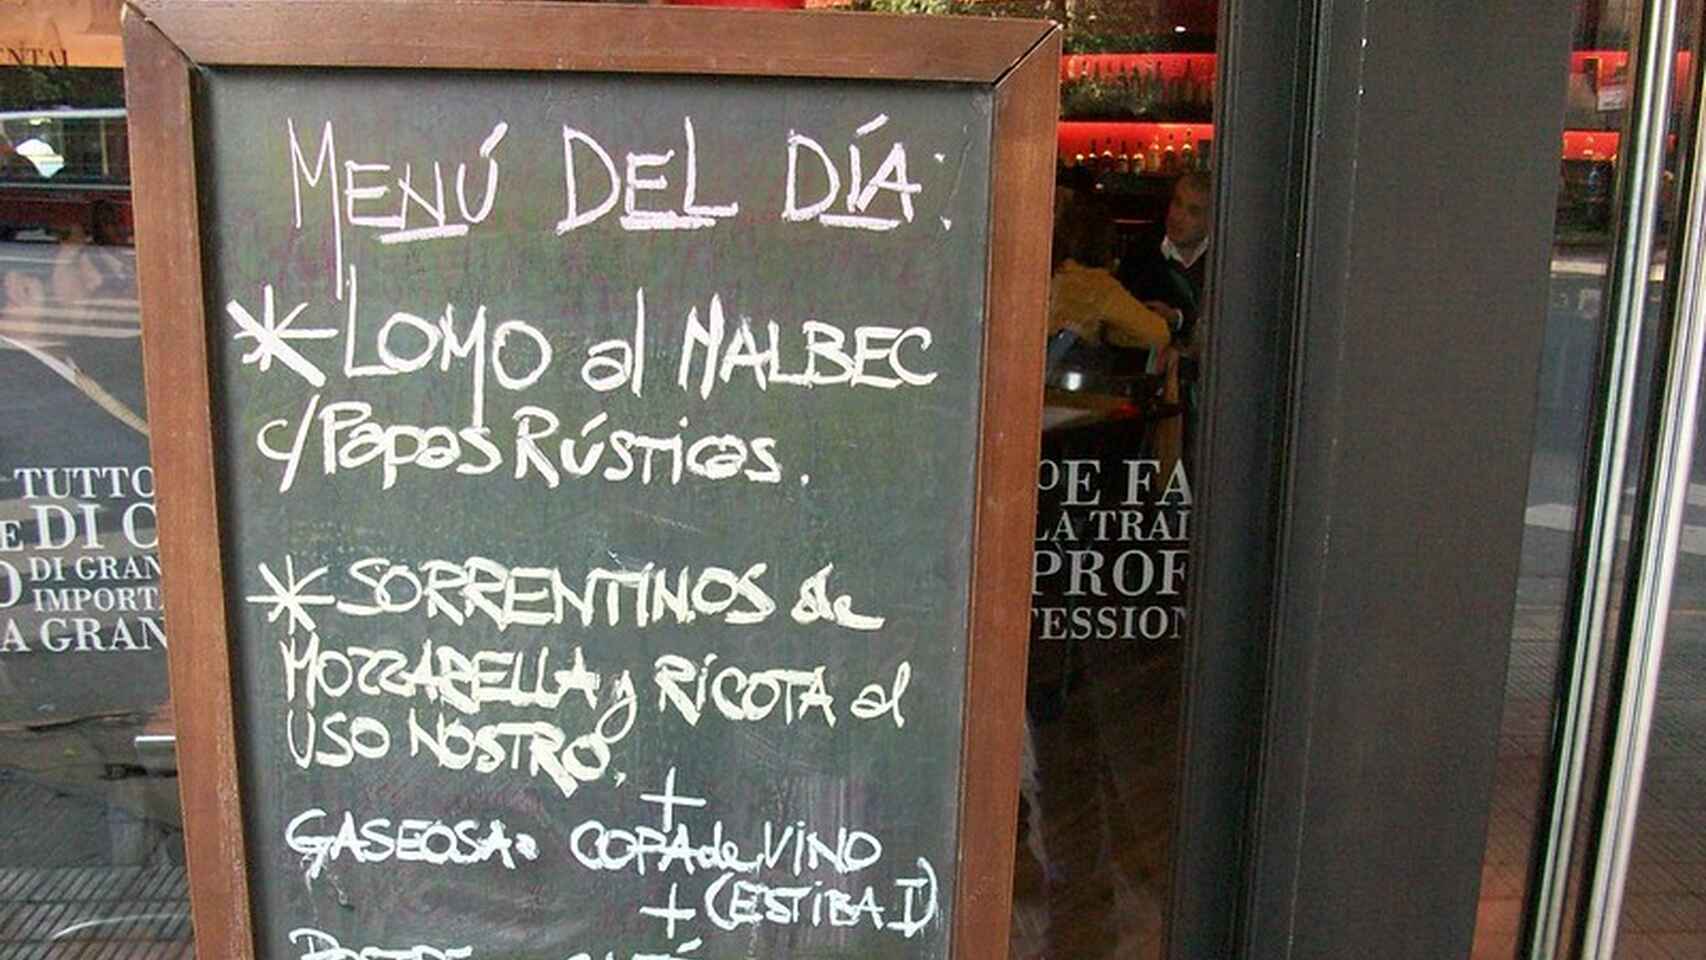 MENÚ DEL DÍA:
* LOMO al MALBEC
c/Papas RÚSTICas.
* SORRENTINOS de
MOZZARELLA y RICOTA al
USO NOSTRO.
+
GASEOSA o COPA de VINO
+ (ESTIBA I)
TUTTO
E DI C
DI GRAN
IMPORTA
A GRAN
PE FA
LA TRAI
PROF
FESSION